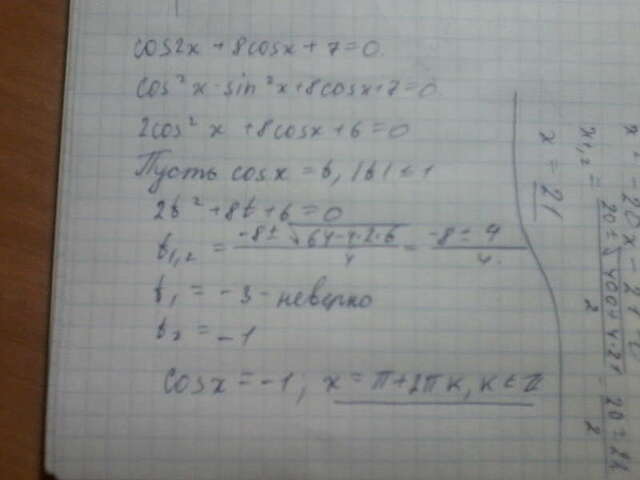 cos2x + 8cosx + 7 = 0
cos²x - sin²x + 8cosx + 7 = 0
2cos²x + 8cosx + 6 = 0
Пусть cosx = t, |t| ≤ 1
2t² + 8t + 6 = 0
t₁,₂ = (-8 ± √(64 - 4·2·6))/4 = (-8 ± 4)/4
t₁ = -3 - неверно
t₂ = -1
cosx = -1; x = π + 2πk, k ∈ Z
x₁,₂ = (20 ± √(400 + 4·21))/2 = (20 ± 22)/2
x = 21